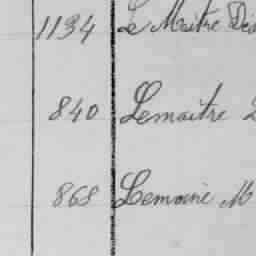 1134 Le Maitre
840 Lemaitre
868 Lemoine M